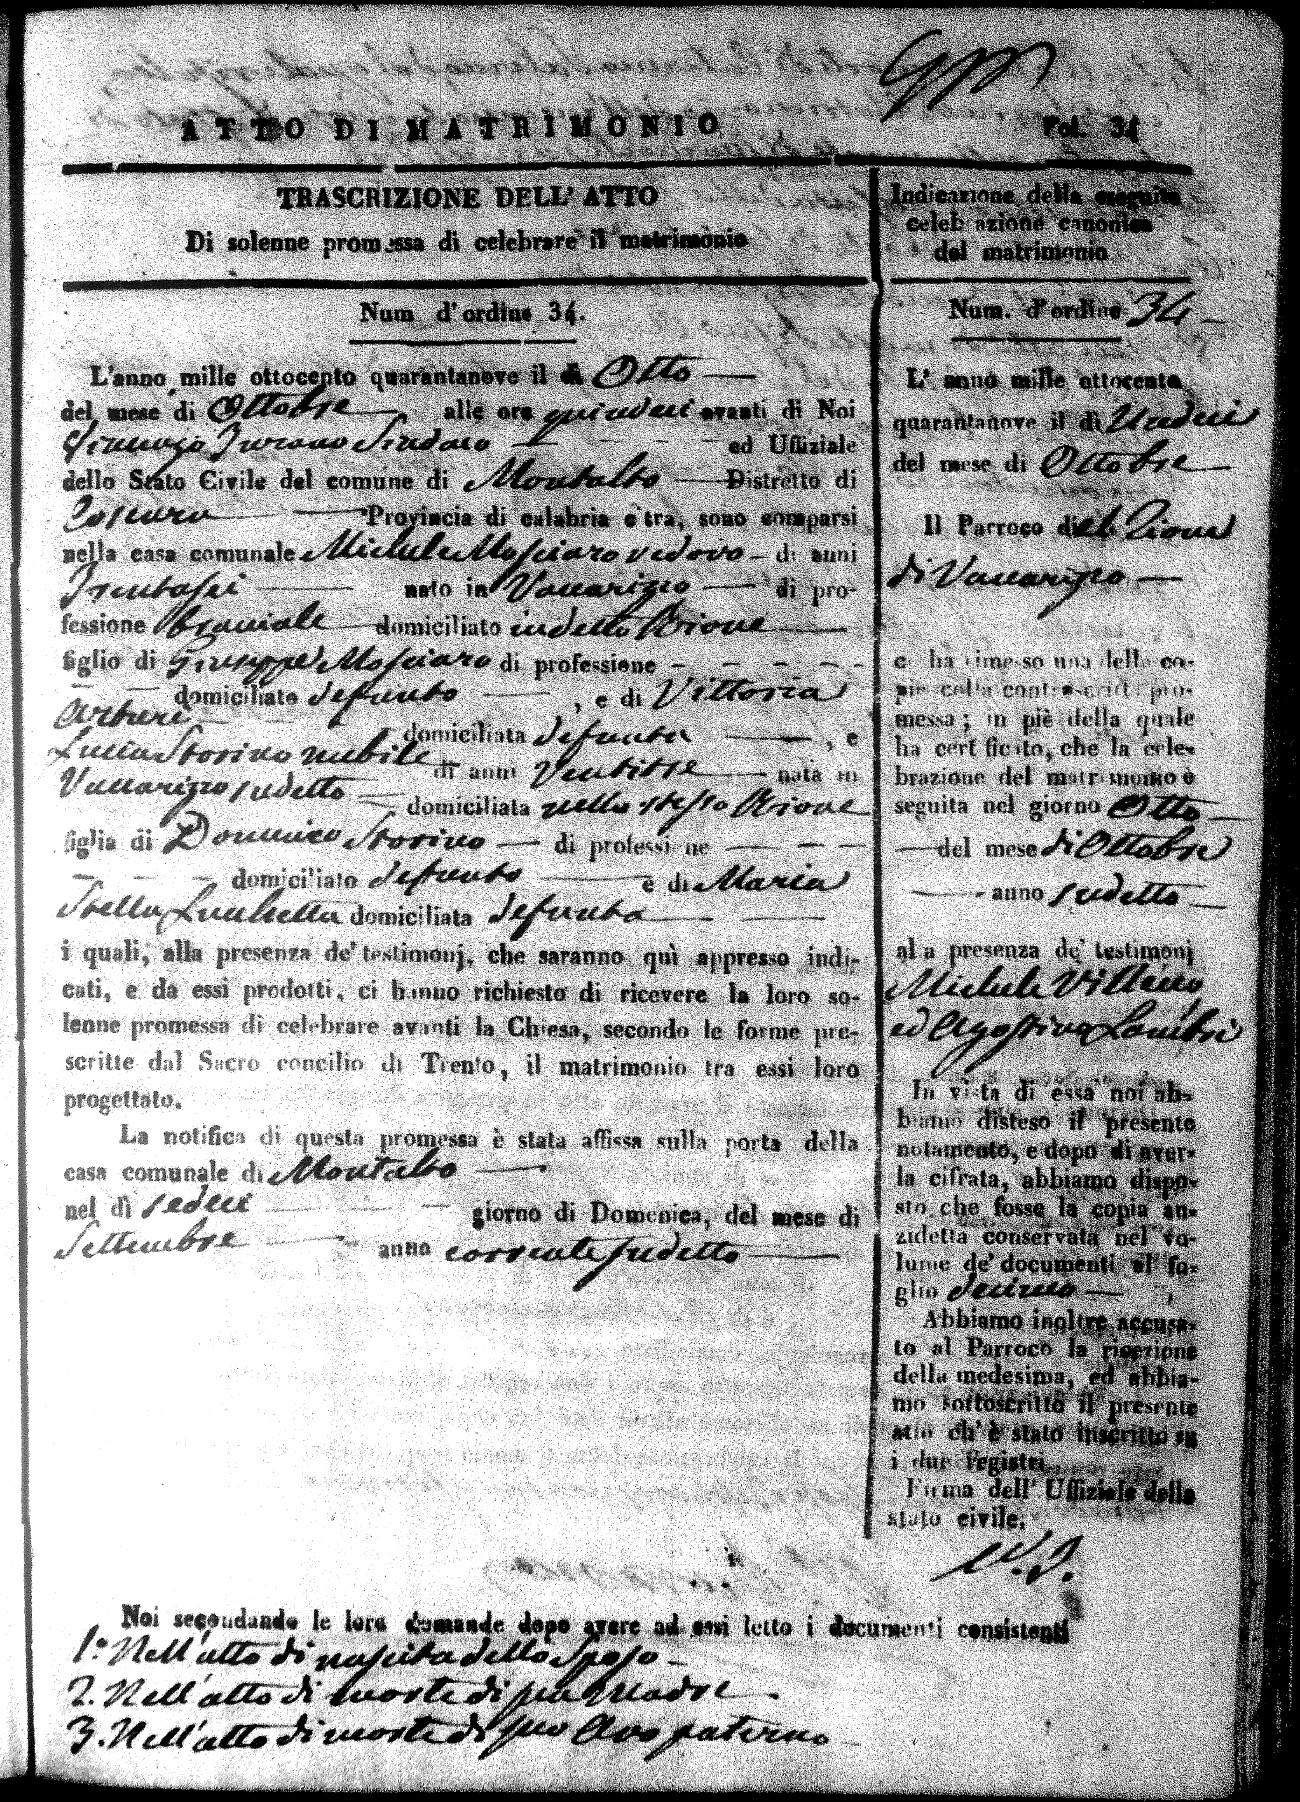 ATTO DI MATRIMONIO
Fol. 34
TRASCRIZIONE DELL' ATTO
Di solenne promessa di celebrare il matrimonio
Num d'ordine 34.
L'anno mille ottocento quarantanove il dì Otto
del mese di Ottobre alle ore quindici avanti di Noi
Sindaco ed Uffiziale
dello Stato Civile del comune di Montalto Distretto di
Provincia di calabria citra, sono comparsi
nella casa comunale Michele Mosciaro vedovo di anni
Trentasei nato in Vaccarizzo di pro-
fessione bracciale domiciliato in detto Rione
figlio di Giuseppe Mosciaro di professione
domiciliato defunto, e di Vittoria
domiciliata defunta, e
Lucia Storino nubile di anni Ventitre nata in
Vaccarizzo sudetto domiciliata nello stesso Rione
figlia di Domenico Storino di professione
domiciliato defunto e di Maria
Stella domiciliata defunta
i quali, alla presenza de' testimonj, che saranno quì appresso indi-
cati, e da essi prodotti, ci hanno richiesto di ricevere la loro so-
lenne promessa di celebrare avanti la Chiesa, secondo le forme pre-
scritte dal Sacro concilio di Trento, il matrimonio tra essi loro
progettato.
La notifica di questa promessa è stata affissa sulla porta della
casa comunale di Montalto
nel dì sedeci giorno di Domenica, del mese di
Settembre anno corrente sudetto
Indicazione della eseguita
celebrazione canonica
del matrimonio
Num. d'ordine 34
L' anno mille ottocento
quarantanove il dì Undeci
del mese di Ottobre
Il Parroco del Rione
di Vaccarizzo
ci ha rimesso una delle co-
pie della controscritta pro-
messa; in piè della quale
ha certificato, che la cele-
brazione del matrimonio è
seguita nel giorno Otto
del mese di Ottobre
anno sudetto
alla presenza de' testimonj
Michele
ed Agostino
In vista di essa noi ab-
biamo disteso il presente
notamento, e dopo di aver-
la cifrata, abbiamo dispo-
sto che fosse la copia an-
zidetta conservata nel vo-
lume de' documenti al fo-
glio decimo
Abbiamo inoltre accusa-
to al Parroco la ricezione
della medesima, ed abbia-
mo sottoscritto il presente
atto ch' è stato inscritto su
i due registri.
Firma dell' Uffiziale dello
stato civile.
Noi secondando le loro domande dopo avere ad essi letto i documenti consistenti
1.° Nell'atto di nascita dello Sposo
2. Nell'atto di morte di sua Madre
3. Nell'atto di morte di suo Avo paterno